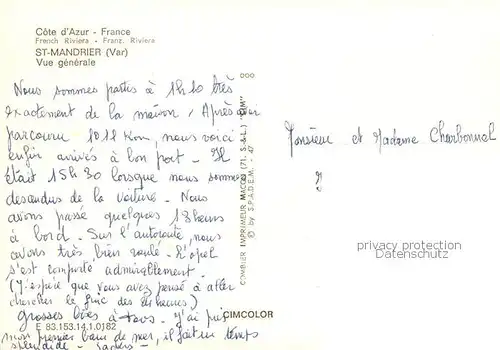 Côte d'Azur - France
French Riviera - Franz. Riviera
ST-MANDRIER (Var)
Vue générale
Nous sommes partis à 1h10 très
exactement de la maison. Après avoir
parcouru 1011 Km, nous voici
enfin arrivés à bon port - Il
était 15h30 lorsque nous sommes
descendus de la voiture. Nous
avons passé quelques 13 heures
à bord. Sur l'autoroute, nous
avons très bien roulé. L'opel
s'est comporté admirablement.
(J'espère que vous avez pensé à aller
chercher le fric des
grosses bises à tous. J'ai pris
mon premier bain de mer, il fait un temps
splendide -
COMBIER IMPRIMEUR MACON (71. S.-&-L.) "CIM"
© by S.P.A.D.E.M. - 47
CIMCOLOR
E 83.153.14.1.0182
Monsieur et Madame Charbonnel
privacy protection
Datenschutz